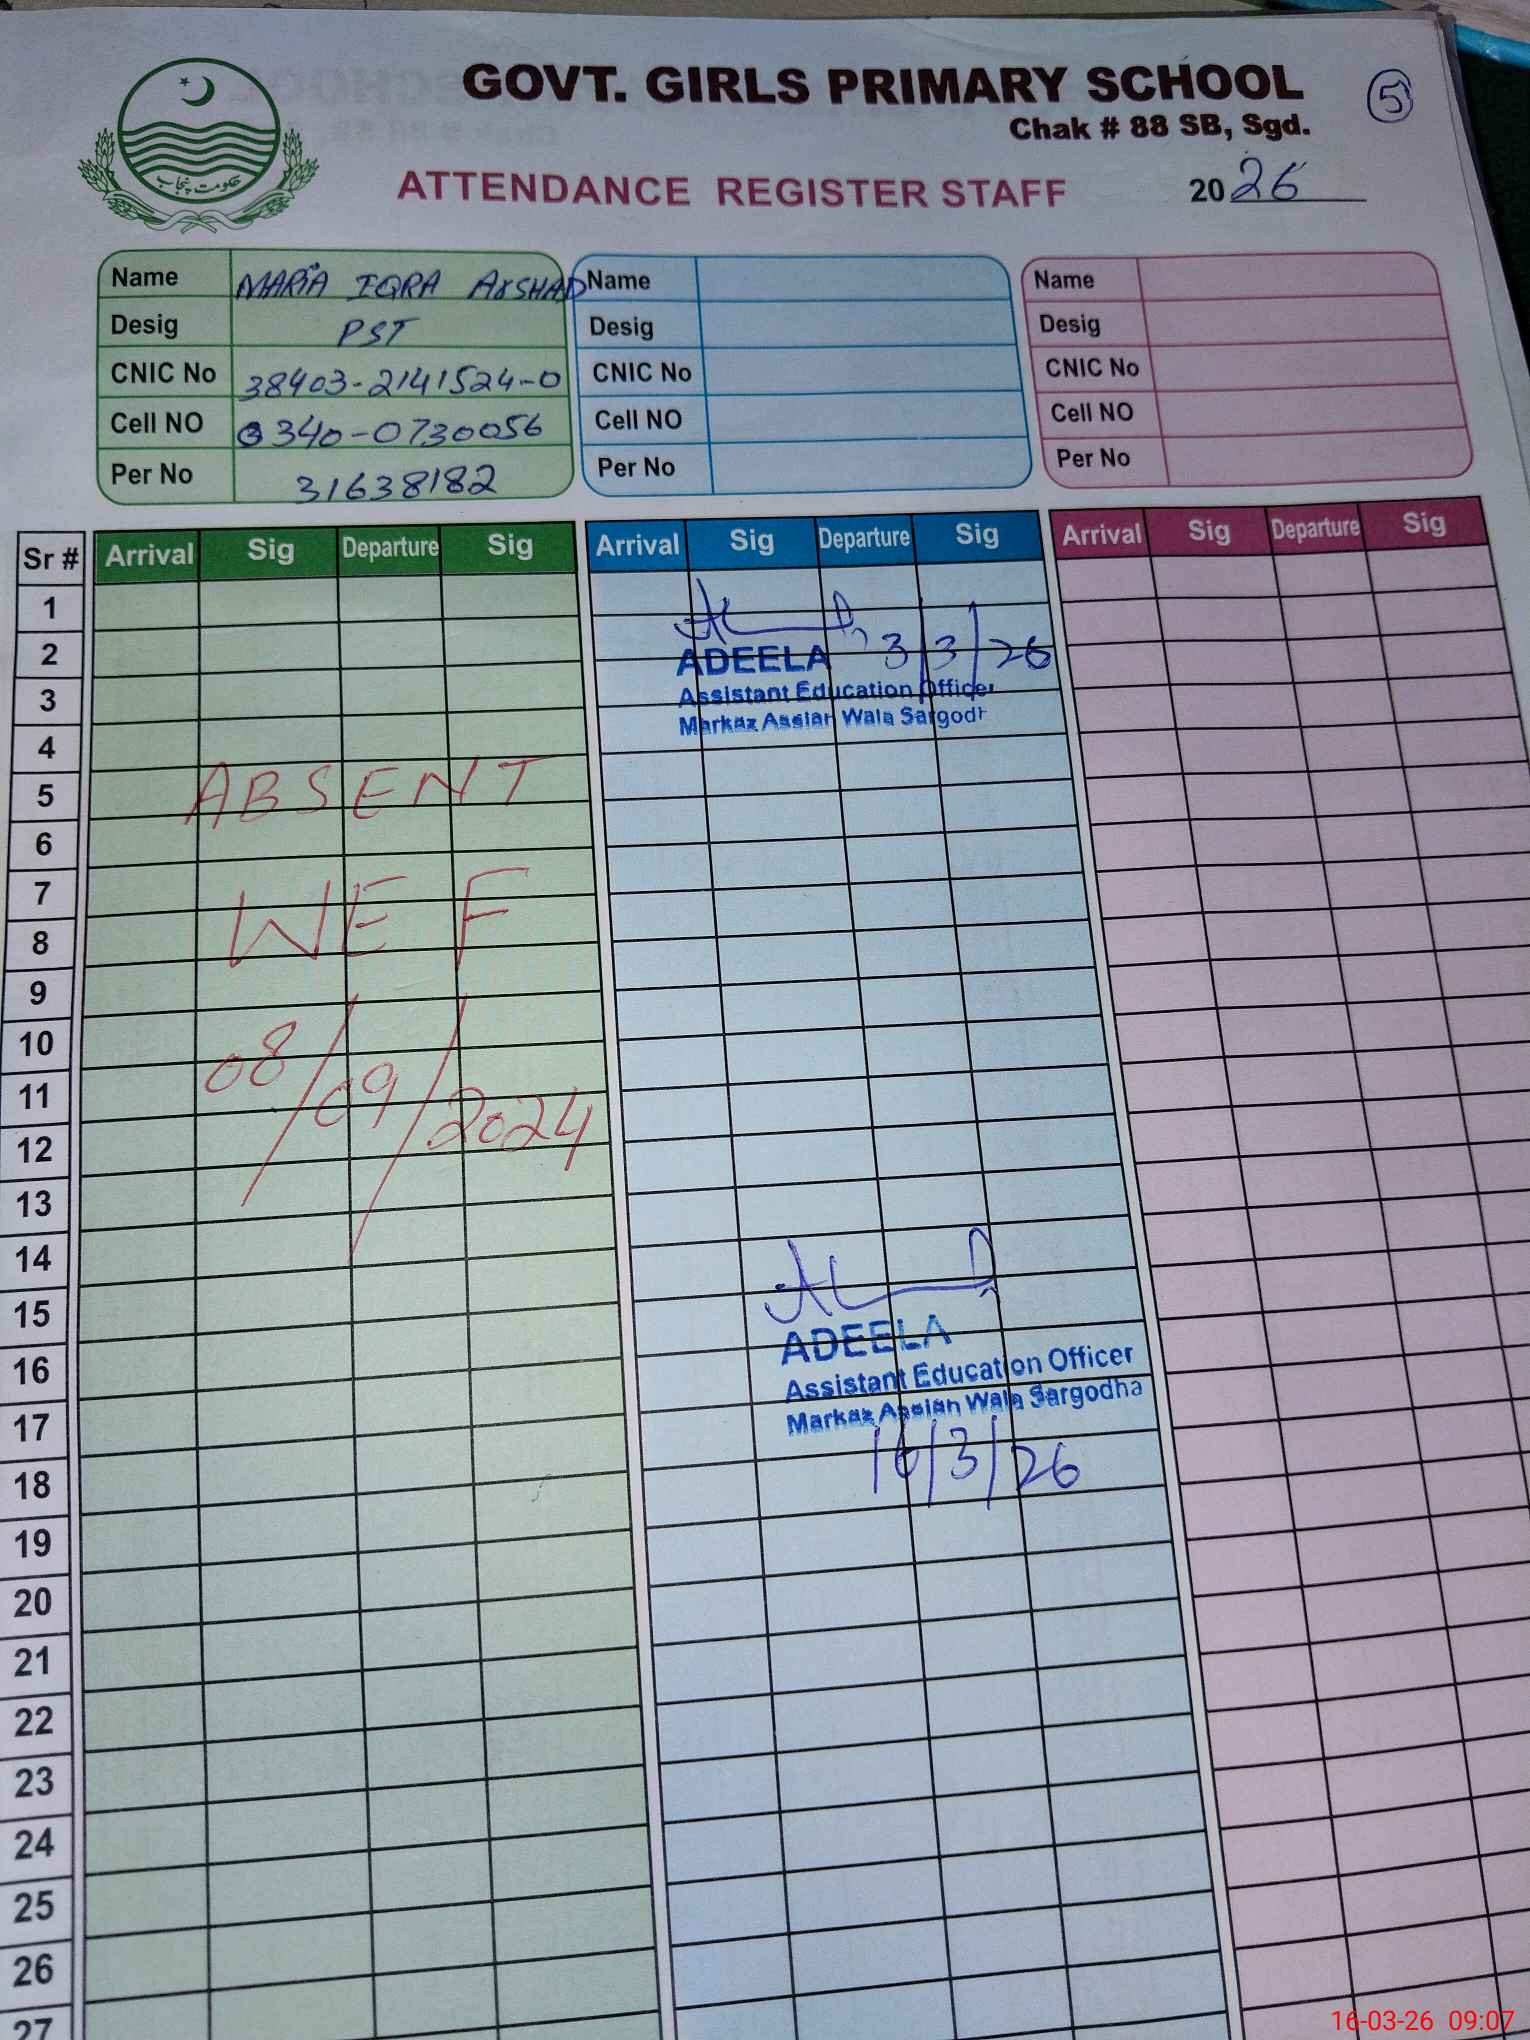 GOVT. GIRLS PRIMARY SCHOOL
5
Chak # 88 SB, Sgd.
حکومت پنجاب
ATTENDANCE REGISTER STAFF
2026
Name MARIA IQRA ARSHAD
Desig PST
CNIC No 38403-2141524-0
Cell NO 0340-0730056
Per No 31638182
Name
Desig
CNIC No
Cell NO
Per No
Name
Desig
CNIC No
Cell NO
Per No
Sr # Arrival Sig Departure Sig Arrival Sig Departure Sig Arrival Sig Departure Sig
1
2
3
4
5
6
7
8
9
10
11
12
13
14
15
16
17
18
19
20
21
22
23
24
25
26
27
ABSENT
WEF
08/09/2024
ADEELA 3/3/26
Assistant Education Officer
Markaz Assian Wala Sargodh
ADEELA
Assistant Education Officer
Markaz Assian Wala Sargodha
16/3/26
16-03-26 09:07